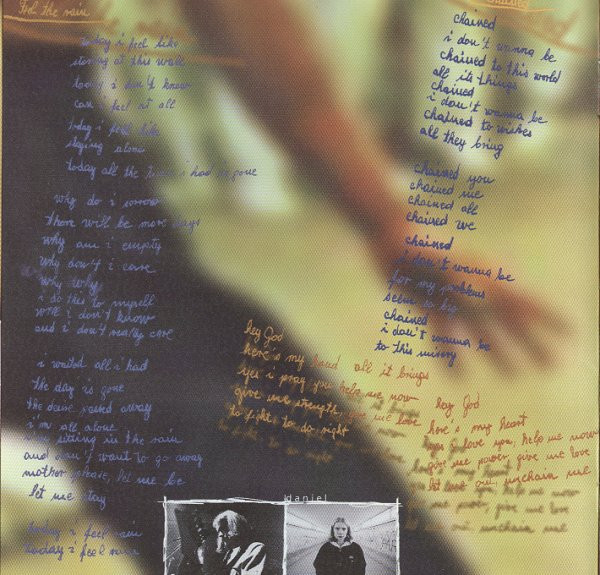 Feel the rain
today i feel like
staring at this wall
today i don't know
can i feel at all
today i feel like
staying alone
today all the i had gone
why do i sorrow
there will be more days
why am i empty
why don't i care
why why
i do this to myself
well i don't know
and i don't really care
i waited all i had
the day is gone
the passed away
i'm all alone
sitting in the rain
and don't want to go away
mother please, let me be
let me stay
today i feel
today i feel rain
chained
chained
i don't wanna be
chained to this world
all it's things
chained
i don't wanna be
chained to wishes
all they bring
chained you
chained me
chained all
chained we
chained
i don't wanna be
for my problems
seem so big
chained
i don't wanna be
to this misery
hey God
here's my hand all it brings
yes i pray you help me now
give me strength, give me love
to fight, to do right
hey God
here's my heart
love you, help me now
give me power, give me love
let out, unchain me
daniel